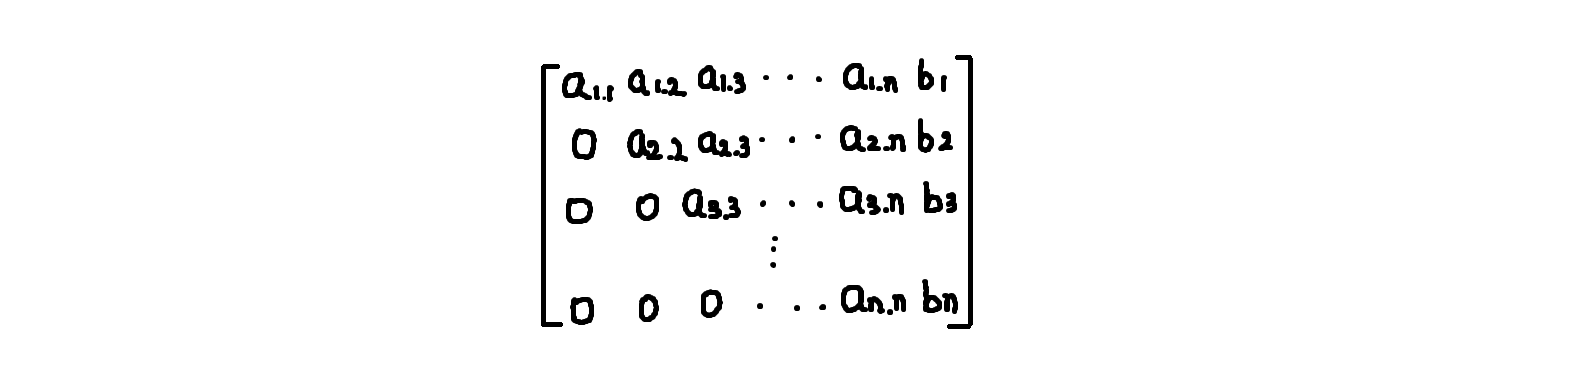 a1.1 a1.2 a1.3 . . . a1.n b1
0 a2.2 a2.3 . . . a2.n b2
0 0 a3.3 . . . a3.n b3
⋮
0 0 0 . . . an.n bn